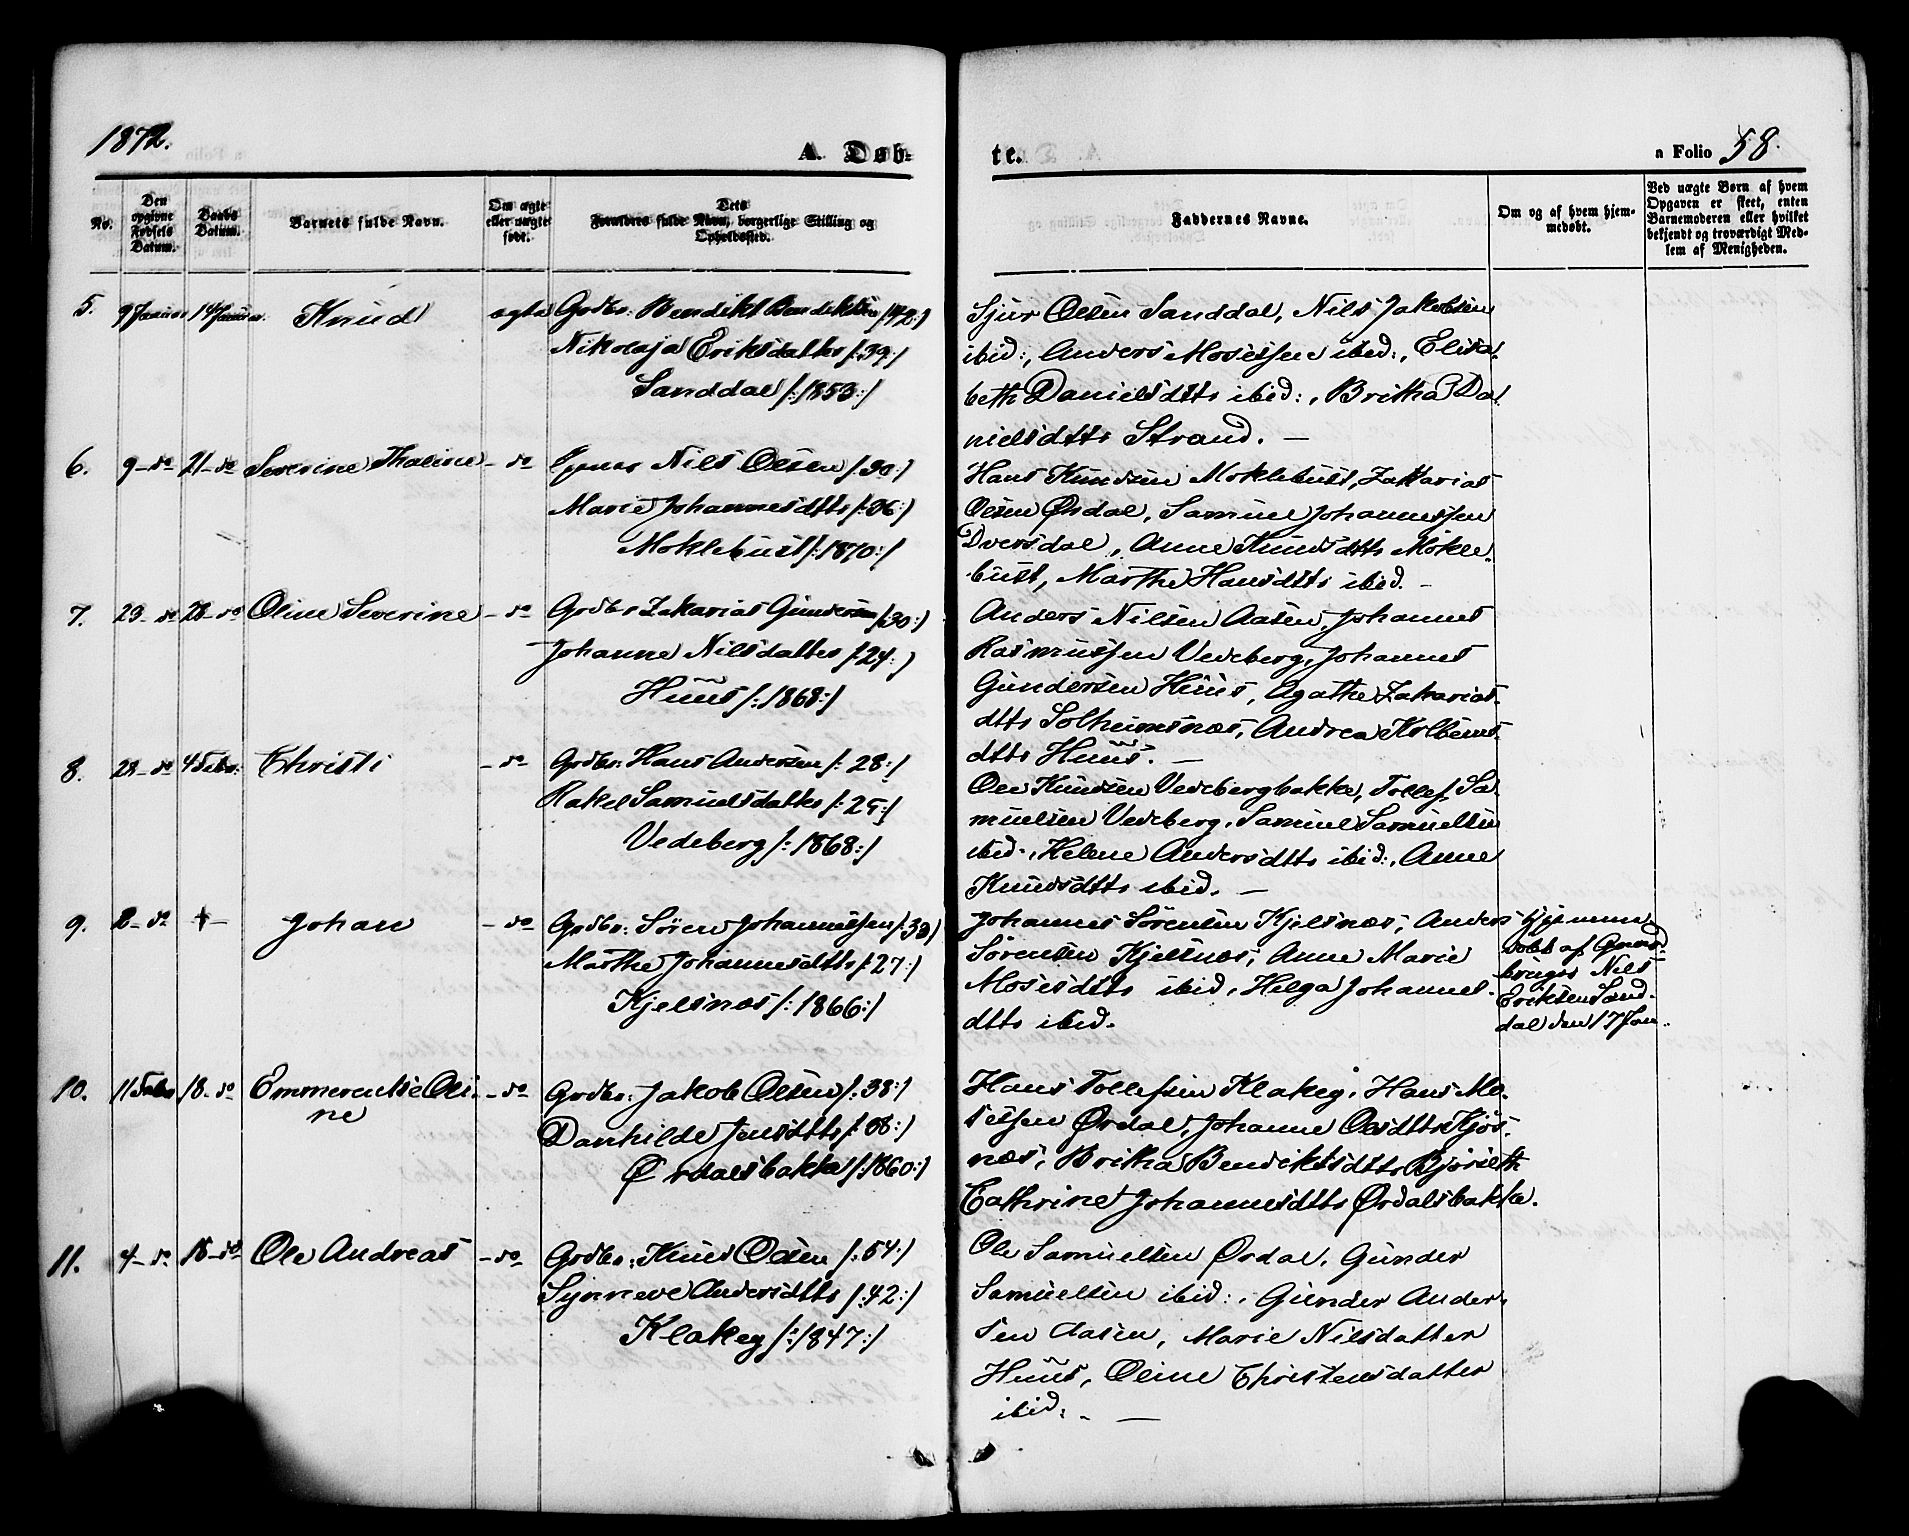 1872.
A. Døb-
te.
a Folio 58.
No.
Den
opgivne
Fødsels
Datum.
Daabs
Datum.
Barnets fulde Navn.
Om ægte
eller uægte
født.
Dets
Forældres fulde Navn, borgerlige Stilling og
Opholdssted.
Faddernes Navne.
Om og af hvem hjem-
medøbt.
Ved uægte Børn af hvem
Opgaven er skeet, enten
Barnemoderen eller hvilket
bekjendt og troværdigt Med-
lem af Menigheden.
5. 9 Januar 14 Januar. Knud ægte Grdbr: Bendikt Bendiktsen /:42:/
Nikolaja Eriksdatter /:39:/
Sanddal /:1853:/
Sjur Olsen Sanddal, Nils Jakobsen
ibid:, Anders Mosessen ibid:, Elisa-
beth Danielsdttr ibid:, Britha Da-
nielsdttr Strand. —
6. 9 – do 21 – do Severine Thaline – do Nils Olsen /:30:/
Marie Johannesdttr /:26:/
Moklebust /:1870:/
Hans Knudsen Moklebust, Zakarias
Olsen Ørdal, Samuel Johannessen
Dversdal, Anne Knudsdttr Mokle-
bust, Marthe Hansdttr ibid. –
7. 23 – do 28 – do Oline Severine – do Grdbr Zakarias Gundersen /:30:/
Johanne Nilsdatter /:24:/
Huus /:1868:/
Anders Nilsen Aasen, Johannes
Rasmussen Vedeberg, Johannes
Gundersen Huus, Agathe Zakarias-
dttr Solheimsnæs, Andrea Kolbens-
dttr Huus. —
8. 28 – do 4 Febr: Christi – do Grdbr: Hans Andersen /: 28:/
Rakel Samuelsdatter /:25:/
Vedeberg /:1868:/
Ole Knudsen Vedebergbakke, Tollef Sa-
muelsen Vedeberg, Samuel Samuelsen
ibid., Helene Andersdttr ibid:, Anne
Knudsdttr ibid. —
9. 2 – do + – Johan – do Grdbr: Søren Johannessen /:33/
Marthe Johannesdttr /:27:/
Kjelsnæs /:1866:/
Johannes Sørensen Kjelsnæs, Anders
Sørensen Kjelsnæs, Anne Marie
Mosesdttr ibid, Helga Johannes-
dttr ibid.
Hjemme-
døbt af Gaard-
bruger Nils
Eriksen Sand-
dal den 17 Jan.
10. 11 Febr 18 – do Emmerentse Oli-
ne – do Grdbr: Jakob Olsen /:38:/
Danhilde Jensdttr /:38:/
Ørdalsbakka /:1860:/
Hans Tollefsen Klakeg, Hans Mo-
sessen Ørdal, Johanne Olesdttr Kjøs-
næs, Britha Bendiktsdttr Bjørseth
Cathrine Johannesdttr Ørdalsbakka.
11. 4 – do 18 – do Ole Andreas – do Grdbr: Knud Olsen /:54:/
Synneve Andersdttr /:42:/
Klakeg /:1847:/
Ole Samuelsen Ørdal, Gunder
Samuelsen ibid:, Gunder Ander-
sen Aasen, Marie Nilsdatter
Huus, Oline Christensdatter
ibid: – —